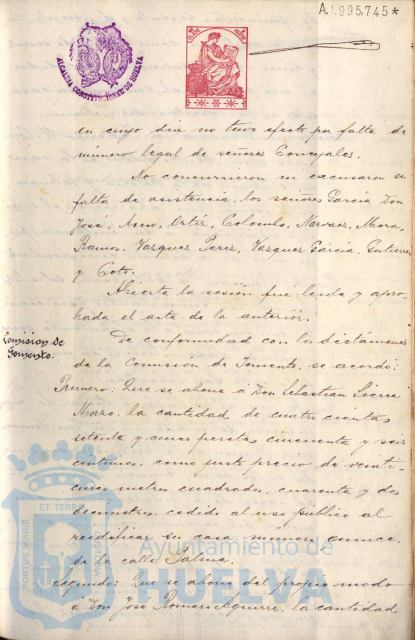 A.1.995,745*
ALCALDIA CONSTITUCIONAL DE HUELVA
en cuyo dia no tuvo efecto por falta de
número legal de señores Concejales.
No concurrieron ni excusaron su
falta de asistencia, los señores Garcia Don
José, Amo, Ortiz, Colombo, Narvaez, Mora,
Ramos, Vazquez Perez, Vazquez Garcia, Gutierrez
y Coto.
Abierta la sesión fué leida y apro-
bada el acta de la anterior.
Comision de
Fomento.
De conformidad con los dictámenes
de la Comisión de Fomento, se acordó:
Primero: Que se abone á Don Sebastian Sierra
Mazo, la cantidad de cuatro cientas
setenta y cinco pesetas cincuenta y seis
centimos, como justo precio de veinti-
cinco metros cuadrados, cuarenta y dos
decimetros, cedido al uso publico al
reedificar su casa número quince
de la calle Palma.
Segundo: Que se abone del propio modo
á Don José Romero Aguirre, la cantidad
PORTUS MARIS
ET TERRE
CUSTODIA
Ayuntamiento de
HUELVA